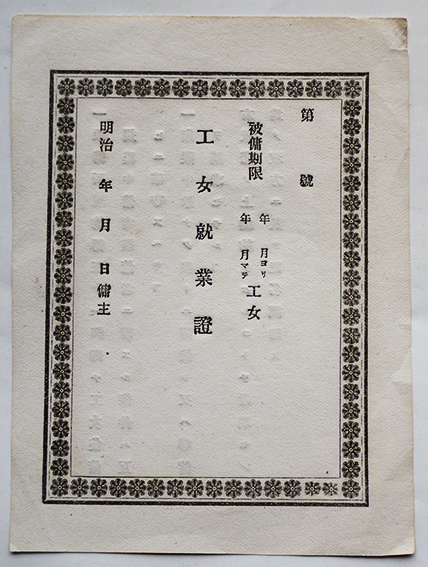 第　號
被傭期限　年　月ヨリ
年　月マテ　工女
工女就業證
明治　年　月　日傭主